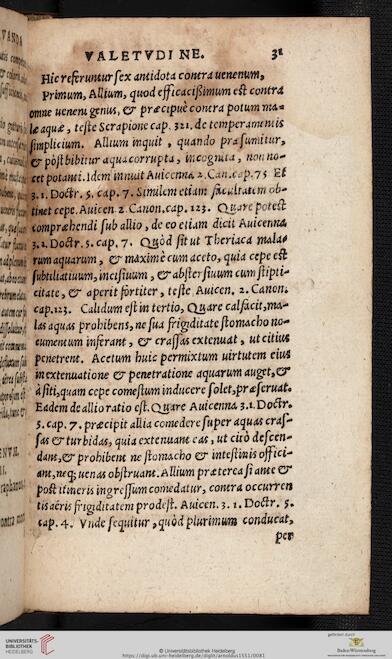 VALETVDINE. 31
Hic referuntur sex antidota contra uenenum,
Primum, Allium, quod efficacißimum est contra
omne ueneni genus, & præcipuè contra potum ma-
læ aquæ, teste Serapione cap. 321. de temperamentis
simplicium. Allium inquit, quando præsumitur,
& pòst bibitur aqua corrupta, incognita, non no-
cet potanti. Idem innuit Auicenna 2. Can. cap. 75 Et
3.1. Doctr. 5. cap. 7. Similem etiam facultatem ob-
tinet cepe. Auicen. 2. Canon. cap. 123. Quare potest
compræhendi sub allio, de eo etiam dicit Auicenna
3.1. Doctr. 5. cap. 7. Quòd sit ut Theriaca mala-
rum aquarum, & maximè cum aceto, quia cepe est
subtiliatiuum, incisiuum, & abstersiuum cum stipti-
citate, & aperit fortiter, teste Auicen. 2. Canon.
cap.123. Calidum est in tertio, Quare calfacit, ma-
las aquas prohibens, ne sua frigiditate stomacho no-
cumentum inferant, & crassas extenuat, ut citius
penetrent. Acetum huic permixtum uirtutem eius
in extenuatione & penetratione aquarum auget, &
à siti, quam cepe comestum inducere solet, præseruat.
Eadem de allio ratio est. Quare Auicenna 3.1. Doctr.
5. cap. 7. præcipit allia comedere super aquas cras-
sas & turbidas, quia extenuant eas, ut citò descen-
dant, & prohibent ne stomacho & intestinis offici-
ant, neq; uenas obstruant. Allium præterea si ante &
post itineris ingressum comedatur, contra occurren
tis aëris frigiditatem prodest. Auicen. 3. 1. Doctr. 5.
cap. 4. Vnde sequitur, quòd plurimum conducat,
per
UNIVERSITÄTS-
BIBLIOTHEK
HEIDELBERG
© Universitätsbibliothek Heidelberg
https://digi.ub.uni-heidelberg.de/diglit/arnoldus1551/0081
gefördert durch
Baden-Württemberg